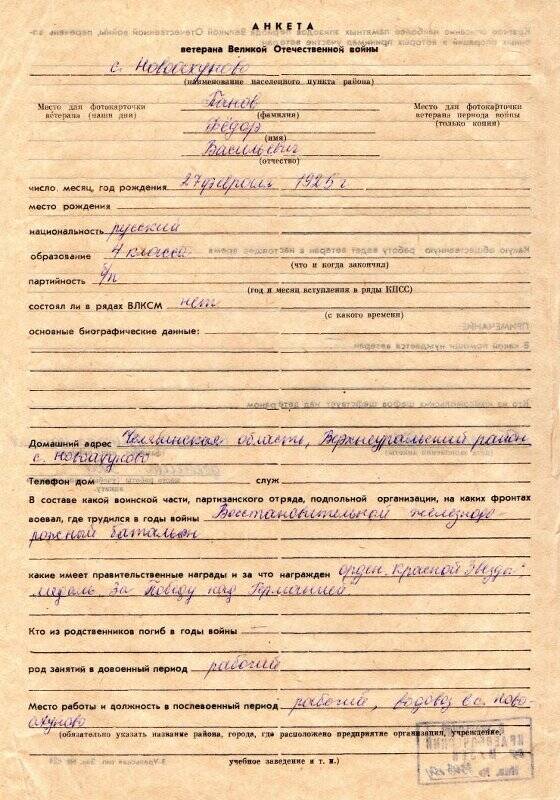 АНКЕТА
ветерана Великой Отечественной войны
с. Новоахуново
(наименование населенного пункта района)
Место для фотокарточки
ветерана (наши дни)
Панов
(фамилия)
Фёдор
(имя)
Васильевич
(отчество)
Место для фотокарточки
ветерана периода войны
(только копия)
число, месяц, год рождения 27 февраля 1925 г.
место рождения
национальность русский
образование 4 класса
(что и когда закончил)
партийность б/п
(год и месяц вступления в ряды КПСС)
состоял ли в рядах ВЛКСМ нет
(с какого времени)
основные биографические данные:
Домашний адрес Челябинская область, Верхнеуральский район
с. Новоахуново
Телефон дом служ
В составе какой воинской части, партизанского отряда, подпольной организации, на каких фронтах
воевал, где трудился в годы войны Восстановительной железнодо-
рожный батальон
какие имеет правительственные награды и за что награжден орден "Красной Звезды",
медаль За Победу над Германией
Кто из родственников погиб в годы войны —
род занятий в довоенный период рабочий
Место работы и должность в послевоенный период рабочий, водовоз в с. Ново-
ахуново
(обязательно указать название района, города, где расположено предприятие организация, учреждение,
учебное заведение и т. п.)